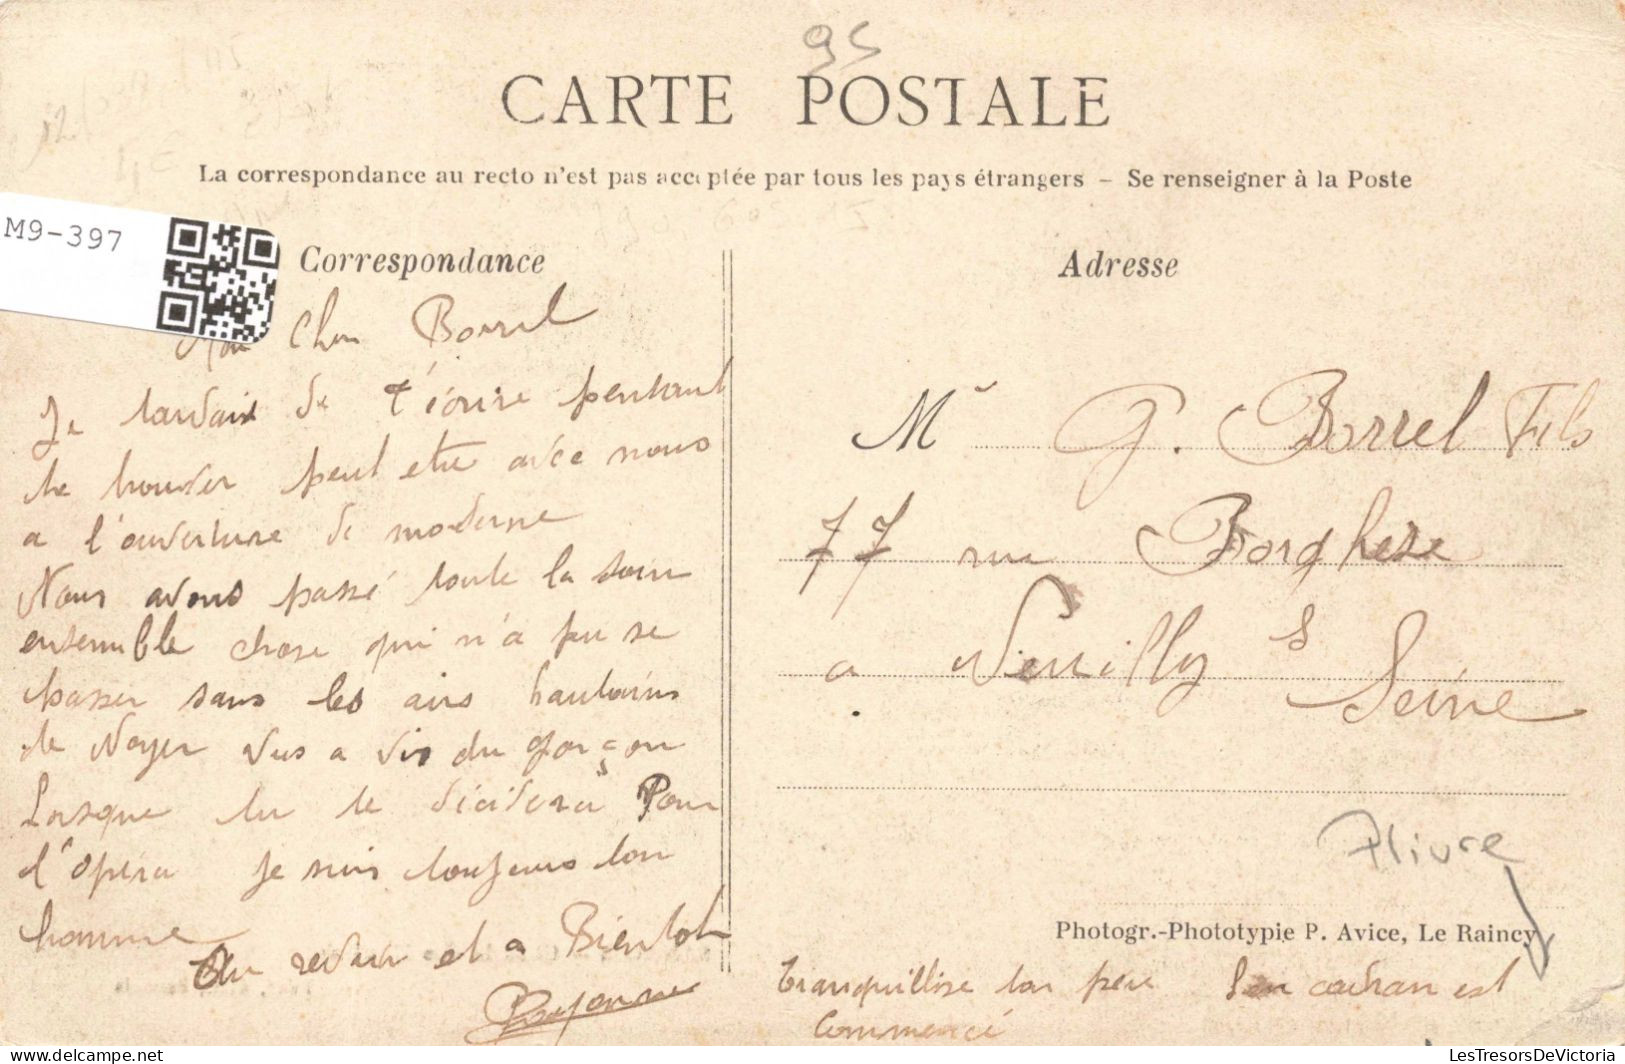 95
CARTE POSTALE
La correspondance au recto n'est pas acceptée par tous les pays étrangers – Se renseigner à la Poste
M9-397
Correspondance
Mon Cher Borrel
Je tardais de t'écrire pensant
te trouver peut etre avec nous
a l'ouverture de moderne
Nous avons passé toute la soire
ensemble chose qui n'a pu se
passer sans les airs hautains
de Noyer vus a vis du garçon
Lorsque tu te décidera Pour
l'opéra je suis toujours ton
homme
Au revoir et a Bientot
Adresse
Mr G. Borrel Fils
77 rue Borghese
a Neuilly s
Seine
Plivre
Photogr.-Phototypie P. Avice, Le Raincy
tranquillise ton pere Son cadran est
commencé
LesTresorsDeVictoria